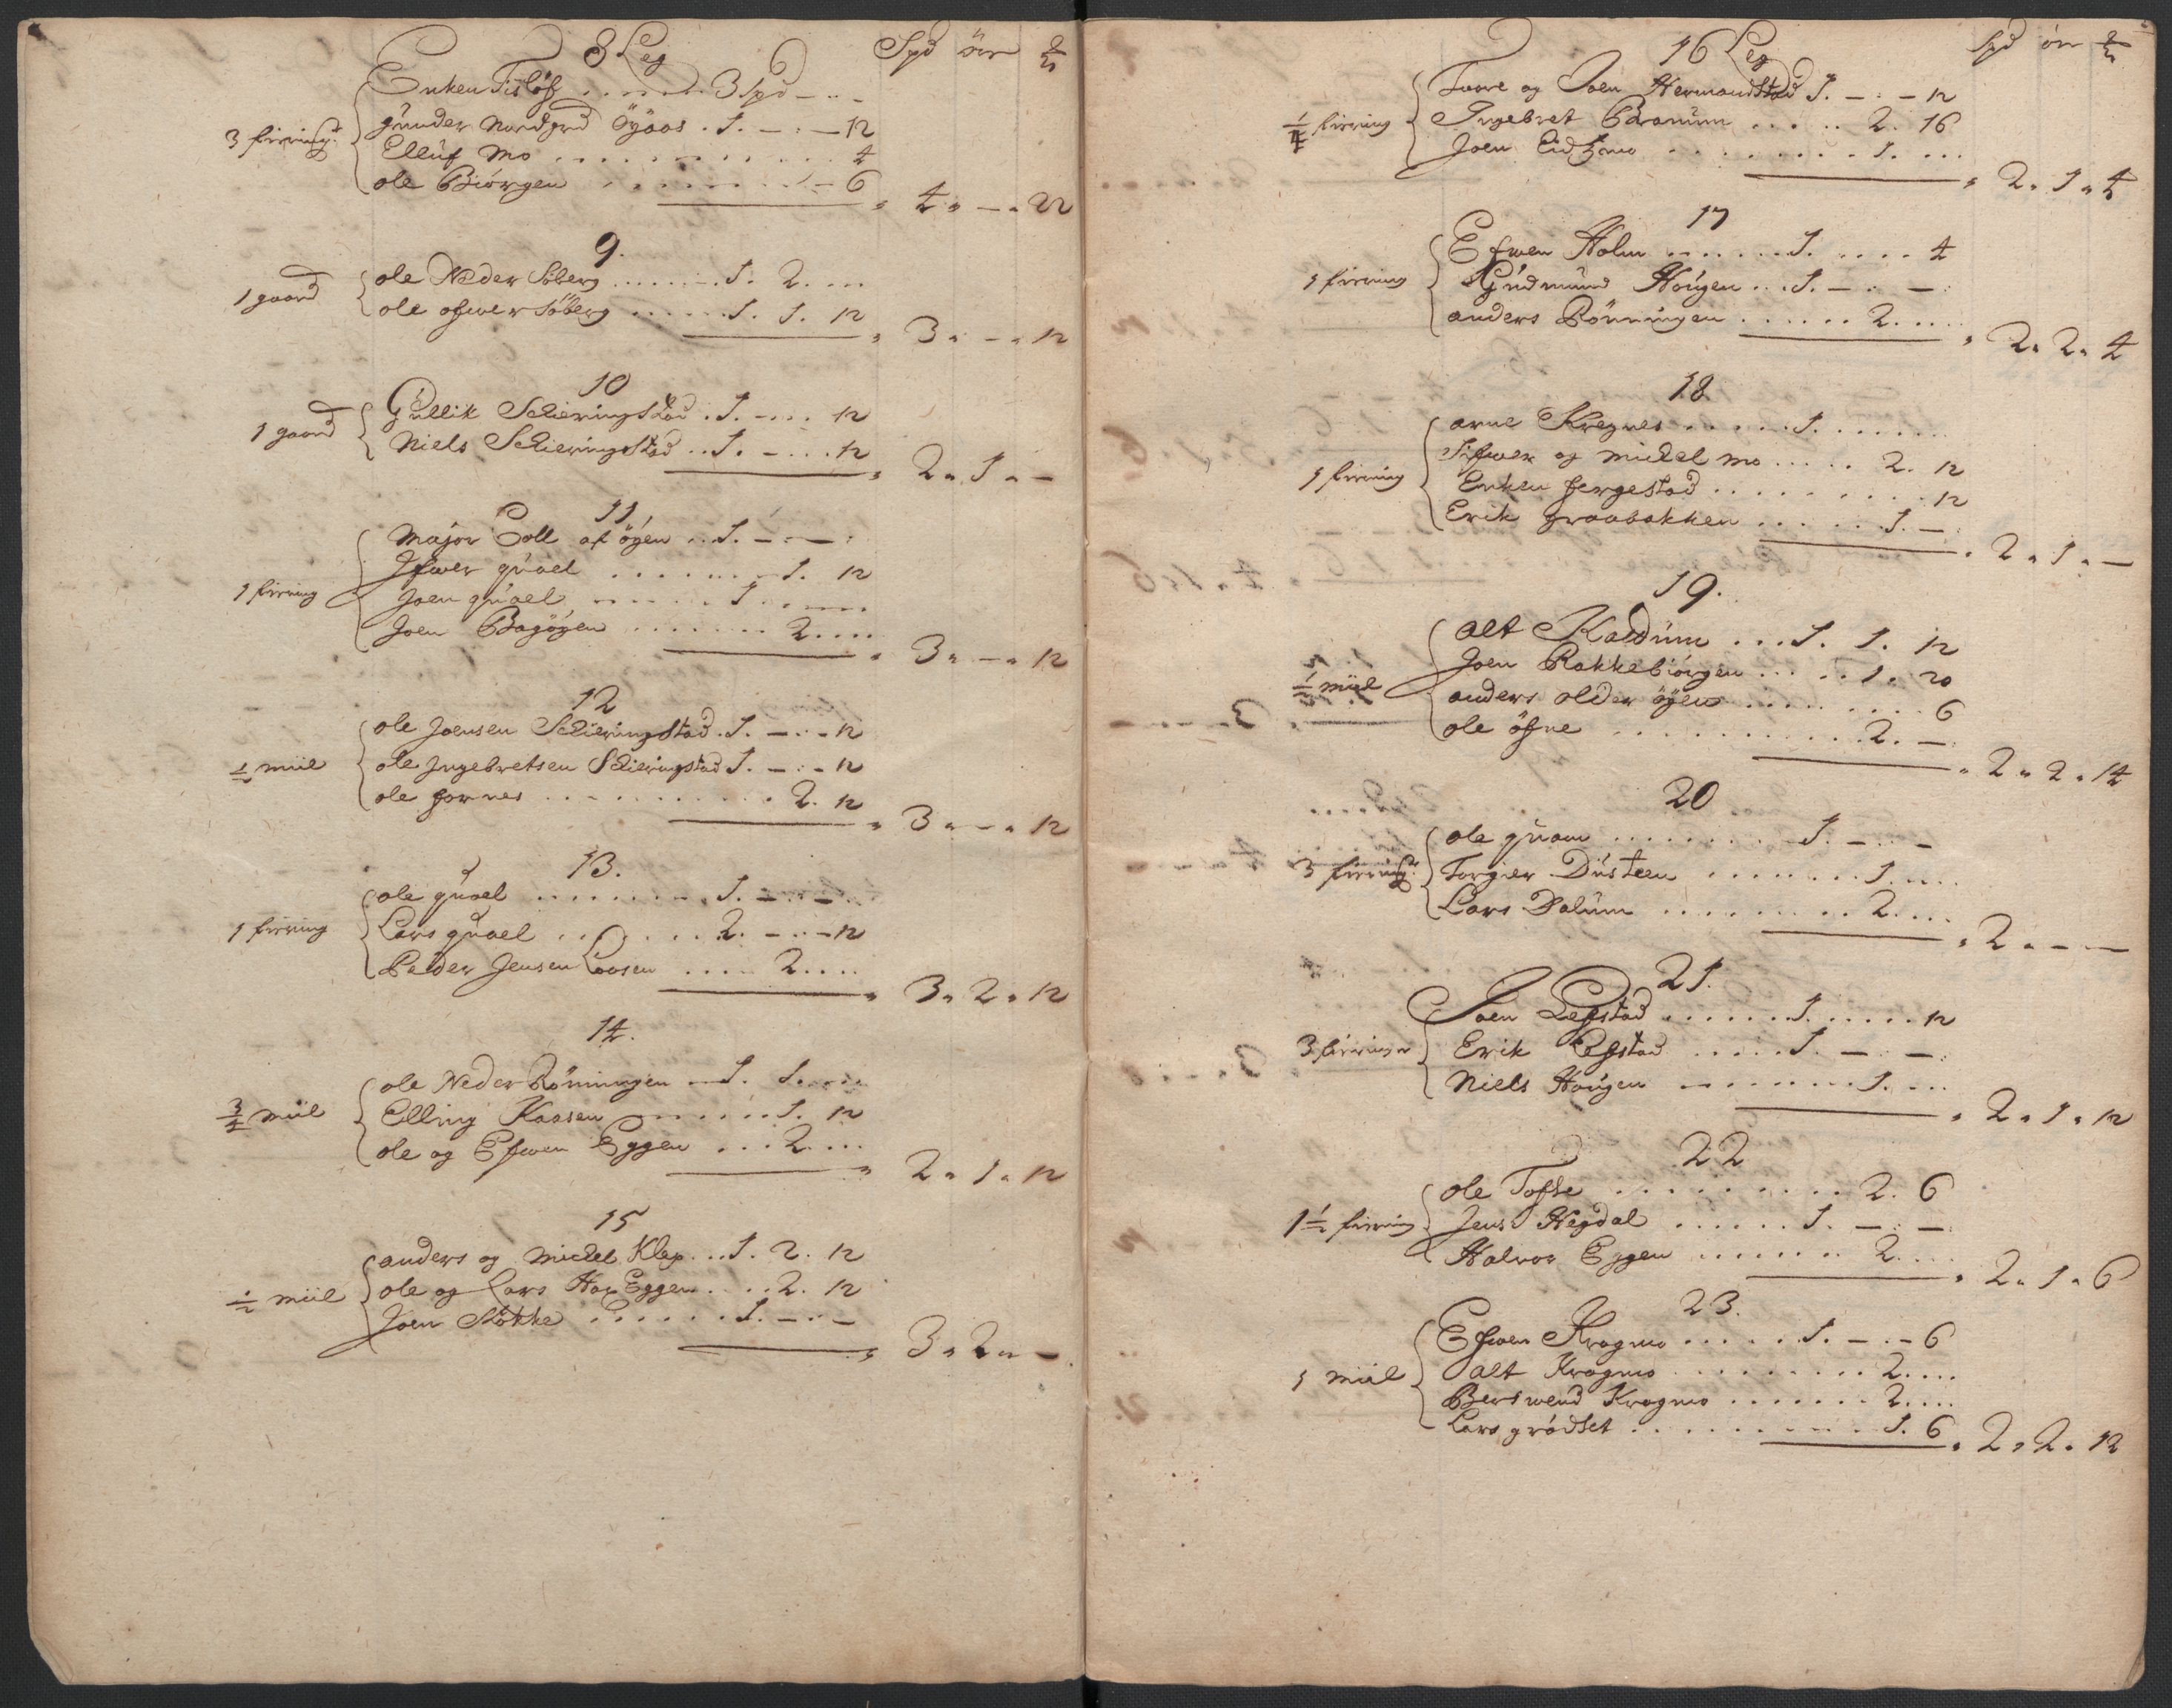 8 Leg Spd ør
Enken Tisløf ...... 3 Spd - . -
3 fierinng: Gunder Nordgrd Øyaas . 1. - : - 12
Elluf Mo ............ 4
ole Biörgen ......... - 6
4 " - " 22
9.
1 gaard ole Neder Söberg ....... 1. 2. ...
ole ofwer Söberg ...... 1. 1. 12
3 " - " 12
10
1 gaard Gullik Schieringstad . 1. - ... 12
Niels Schieringstad .. 1. - ... 12
2 " 1 " -
11
Major Coll af öyen .. 1. - . - :
Jfwer quael ........ 1. 12
1 firring Joen quael ...... 1. ....
Joen Bagöyen ....... 2. ...
3 " - " 12
12
ole Joensen Schieringstad . 1. - . - 12
1/2 miil ole Jngebretsen Schieringstad 1. - : - 12
ole fornes ............ 2. 12
3 " - " 12
13.
ole quael ........ 1. - . -
1 firring Lars quael ........ 2. - . - 12
Peder Jensen Loosen .... 2. ...
3 " 2 " 12
14.
ole Neder Rönningen .. 1. 1. ....
3/4 miil Elling Kaasen ....... 1. 12
ole og Efwen Eggen ... 2. ...
2 " 1 " 12
15
anders og Michel Klep ... 1. 2. 12
1/2 miil ole og Lars Hag Eggen .... 2. 12
Joen Stökke ....... 1. - : -
3 " 2 " -
16 Leg Spd ør
Torre og Joen Hermanstad 1. - : - 12
1/4 firring Ingebret Branum ..... 2. 16
Joen Eidzmo ......... 1. ...
2 " 1 " 4
17
Efwen Holm ...... 1. .... 4
1 firring Gudmund Hougen ... 1. - : - :
anders Rönningen ...... 2. ....
2 " 2 " 4
18
arne Kregnes ..... 1. ......
Sifwer og Michel Mo ..... 2. 12
1 firring Enken fergestad ......... 12
Erik graabakken ...... 1. - :
2 " 1 " -
19.
alt Kaldum ... 1. 1. 12
Joen Rakkebiörgen ..... 1. 20
1/2 miil anders older öyen ......... 6
ole öfne ........... 2. - :
2 " 2 " 14
20
ole quam ......... 1. - . -
3 firring: Torgier Dusteen ....... 1. ....
Lars Dalum ........ 2. ...
2 " - -
21.
Joen Lefstad ...... 1. .... 12
3 firringer Erik Lefstad ..... 1. - . - :
Niels Hougen ....... 1. ...
2 " 1 " 12
22
ole Tofte ......... 2. 6
1 1/2 firring Jens Hegdal ...... 1. - : -
Halvor Eggen ...... 2. ...
2 " 1 " 6
23.
Efwen Kragmo ..... 1. - . - 6
1 miil alt Kragmo ......... 2. ...
Berswend Kragmo ....... 2. ...
Lars grödset .......... 1. 6
2 " 2 " 12